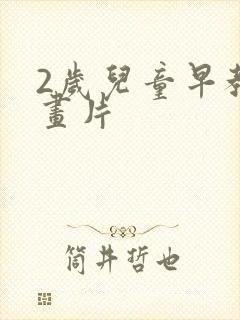 2歲兒童早教
畫片
筒井哲也